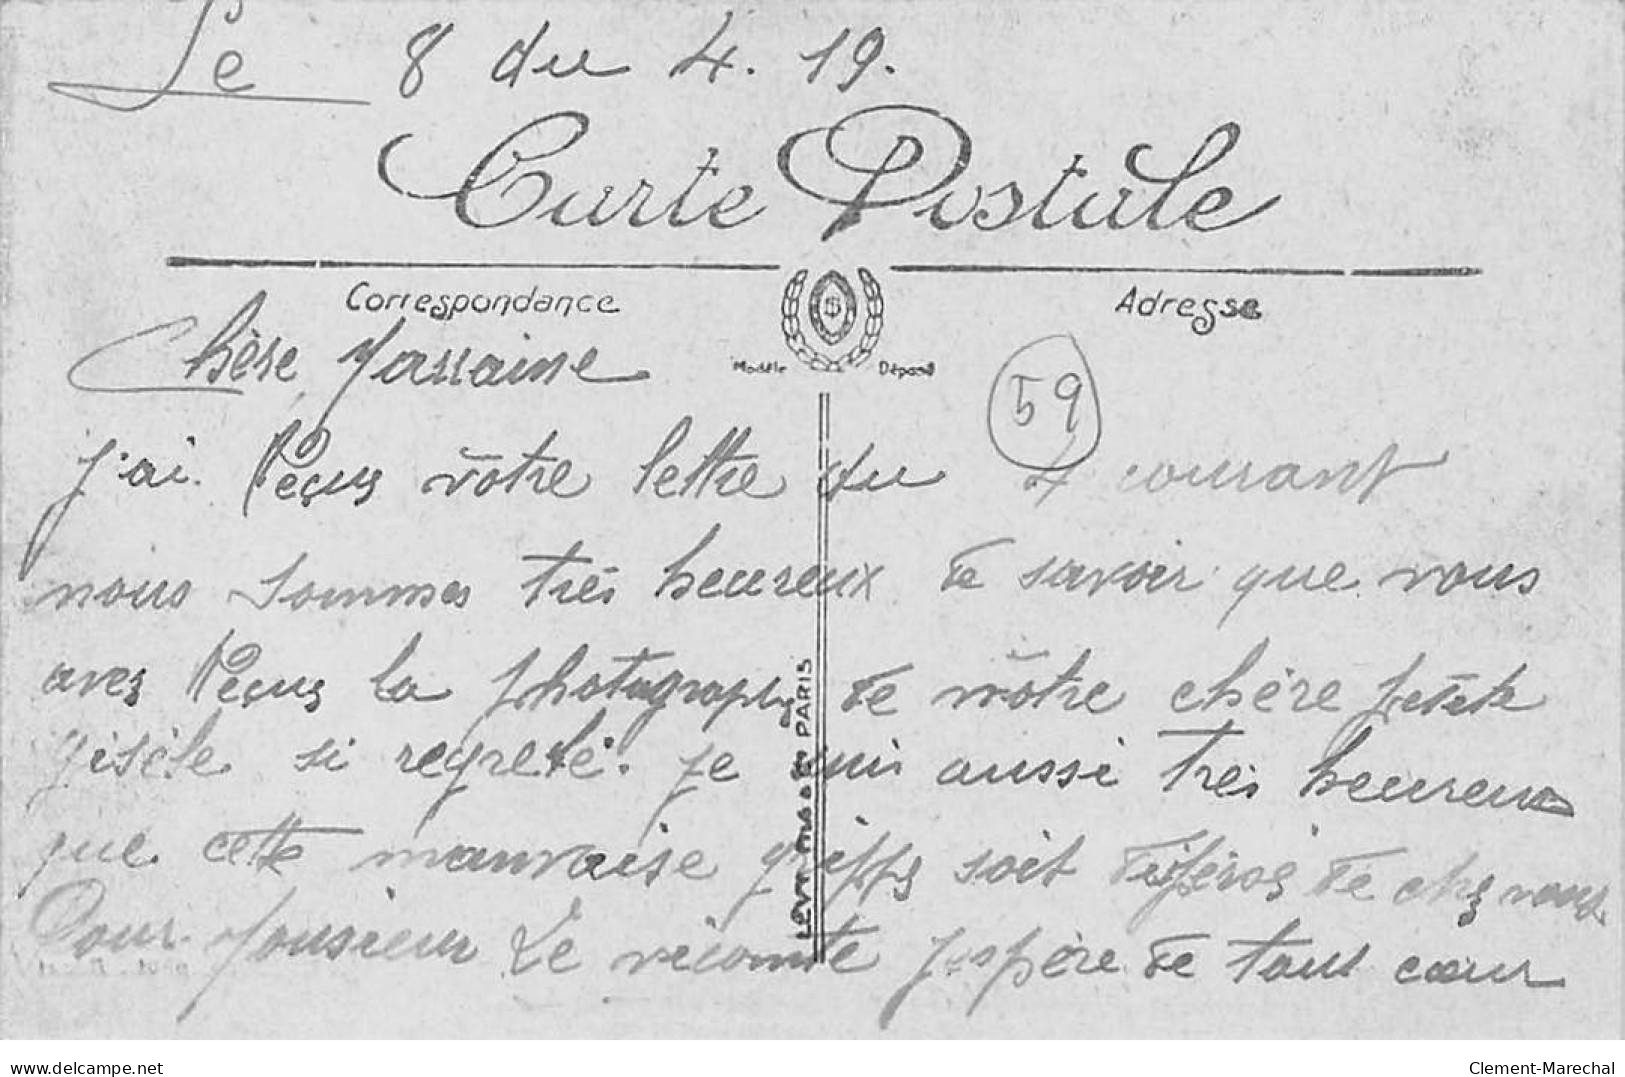 Le 8 du 4. 19.
Carte Postale
Correspondance
Adresse
Modèle Déposé
59
Chère Marraine
j'ai Reçus vôtre lettre du 4 courant
nous sommes très heureux de savoir que vous
aves Reçus la photography de vôtre chère petite
gisèle si regreté. je suis aussi très heureux
que cette mauvaise grippe soit de chez vous
Pour Monsieur Le vicomte j'espère de tout cœur
PARIS
delcampe.net
Clement-Marechal